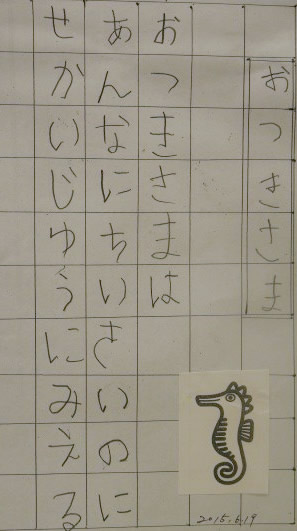 おつきさま
おつきさまは
あんなにちいさいのに
せかいじゆうにみえる
2015.6.19